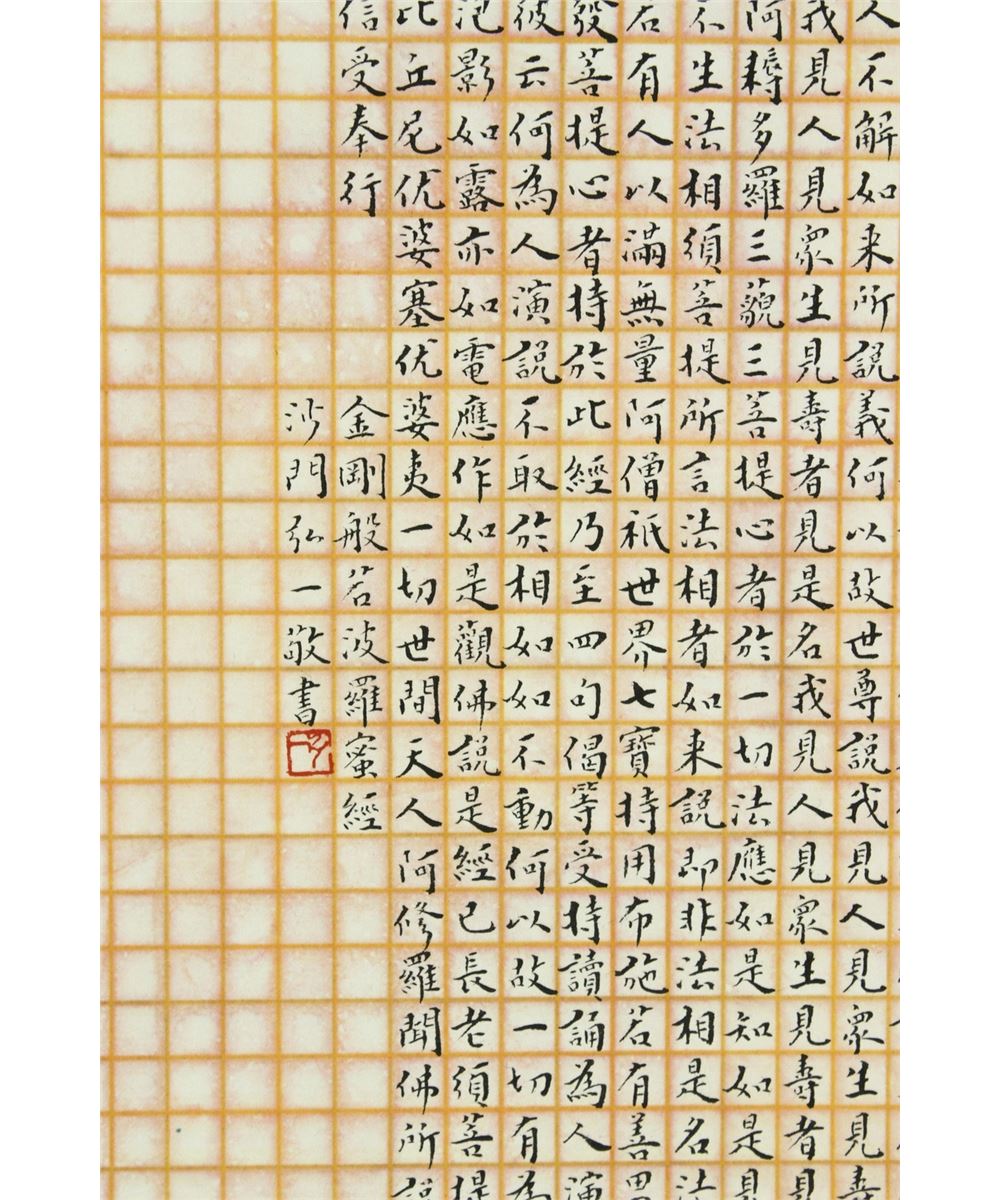 人不解如来所説義何以故世尊説我見人見眾生見壽
我見人見眾生見壽者見是名我見人見眾生見壽者見
阿耨多羅三藐三菩提心者於一切法應如是知如是見
不生法相須菩提所言法相者如来説即非法相是名法
若有人以滿無量阿僧祇世界七寶持用布施若有善男
發菩提心者持於此經乃至四句偈等受持讀誦為人演
彼云何為人演説不取於相如如不動何以故一切有為
泡影如露亦如電應作如是觀佛説是經已長老須菩提
比丘尼优婆塞优婆夷一切世間天人阿修羅聞佛所説
信受奉行
金剛般若波羅蜜經
沙門弘一敬書